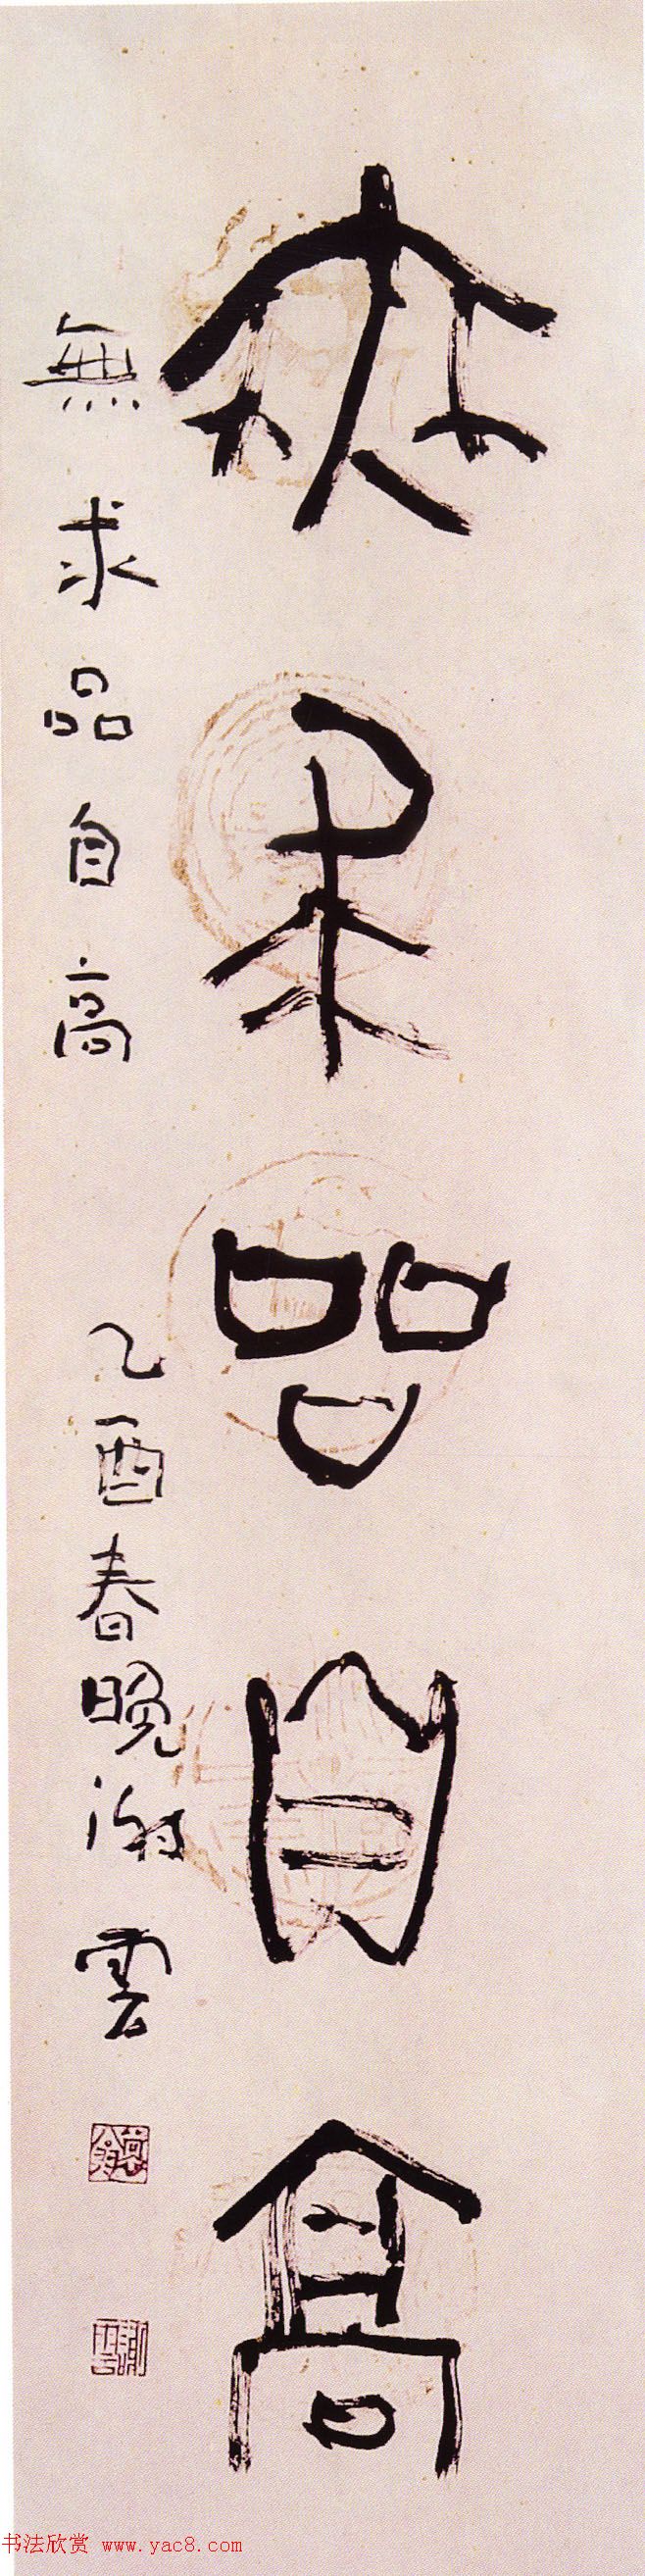 無求品自高
無求品自高 乙酉春晚謝雲
书法欣赏 www.yac8.com